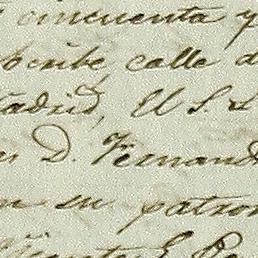 cincuenta y
scribe calle d
Madrid, U S. S
D. Fernand
en su patron